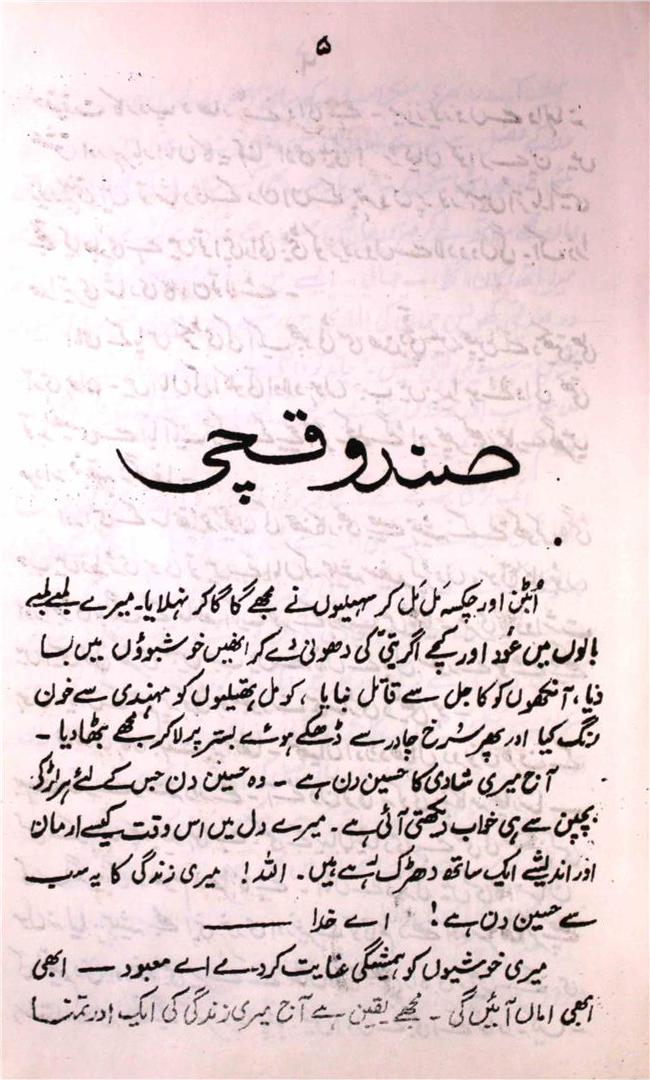 ۵
صندوقچی
اُبٹن اور چکسہ مَل مَل کر سہیلیوں نے مجھے گا گا کر نہلایا۔ میرے لمبے لمبے
بالوں میں عُود اور کچے اگر بتی کی دھونی دے کر انھیں خوشبوؤں میں بسا
دیا، آنکھوں کو کاجل سے قاتل بنایا، کومل ہتھیلیوں کو مہندی سے خون
رنگ کیا اور پھر سُرخ چادر سے ڈھکے ہوئے بستر پر لا کر مجھے بٹھا دیا۔
آج میری شادی کا حسین دن ہے۔ وہ حسین دن جس کے لئے ہر لڑکی
بچپن سے ہی خواب دیکھتی آئی ہے۔ میرے دل میں اس وقت کیسے ارمان
اور اندیشے ایک ساتھ دھڑک رہے ہیں۔ اللہ! میری زندگی کا یہ سب
سے حسین دن ہے! اے خدا ———
میری خوشیوں کو ہمیشگی عنایت کر دے اے معبود — ابھی
ابھی اماں آئیں گی۔ مجھے یقین ہے آج میری زندگی کی ایک اور تمنا